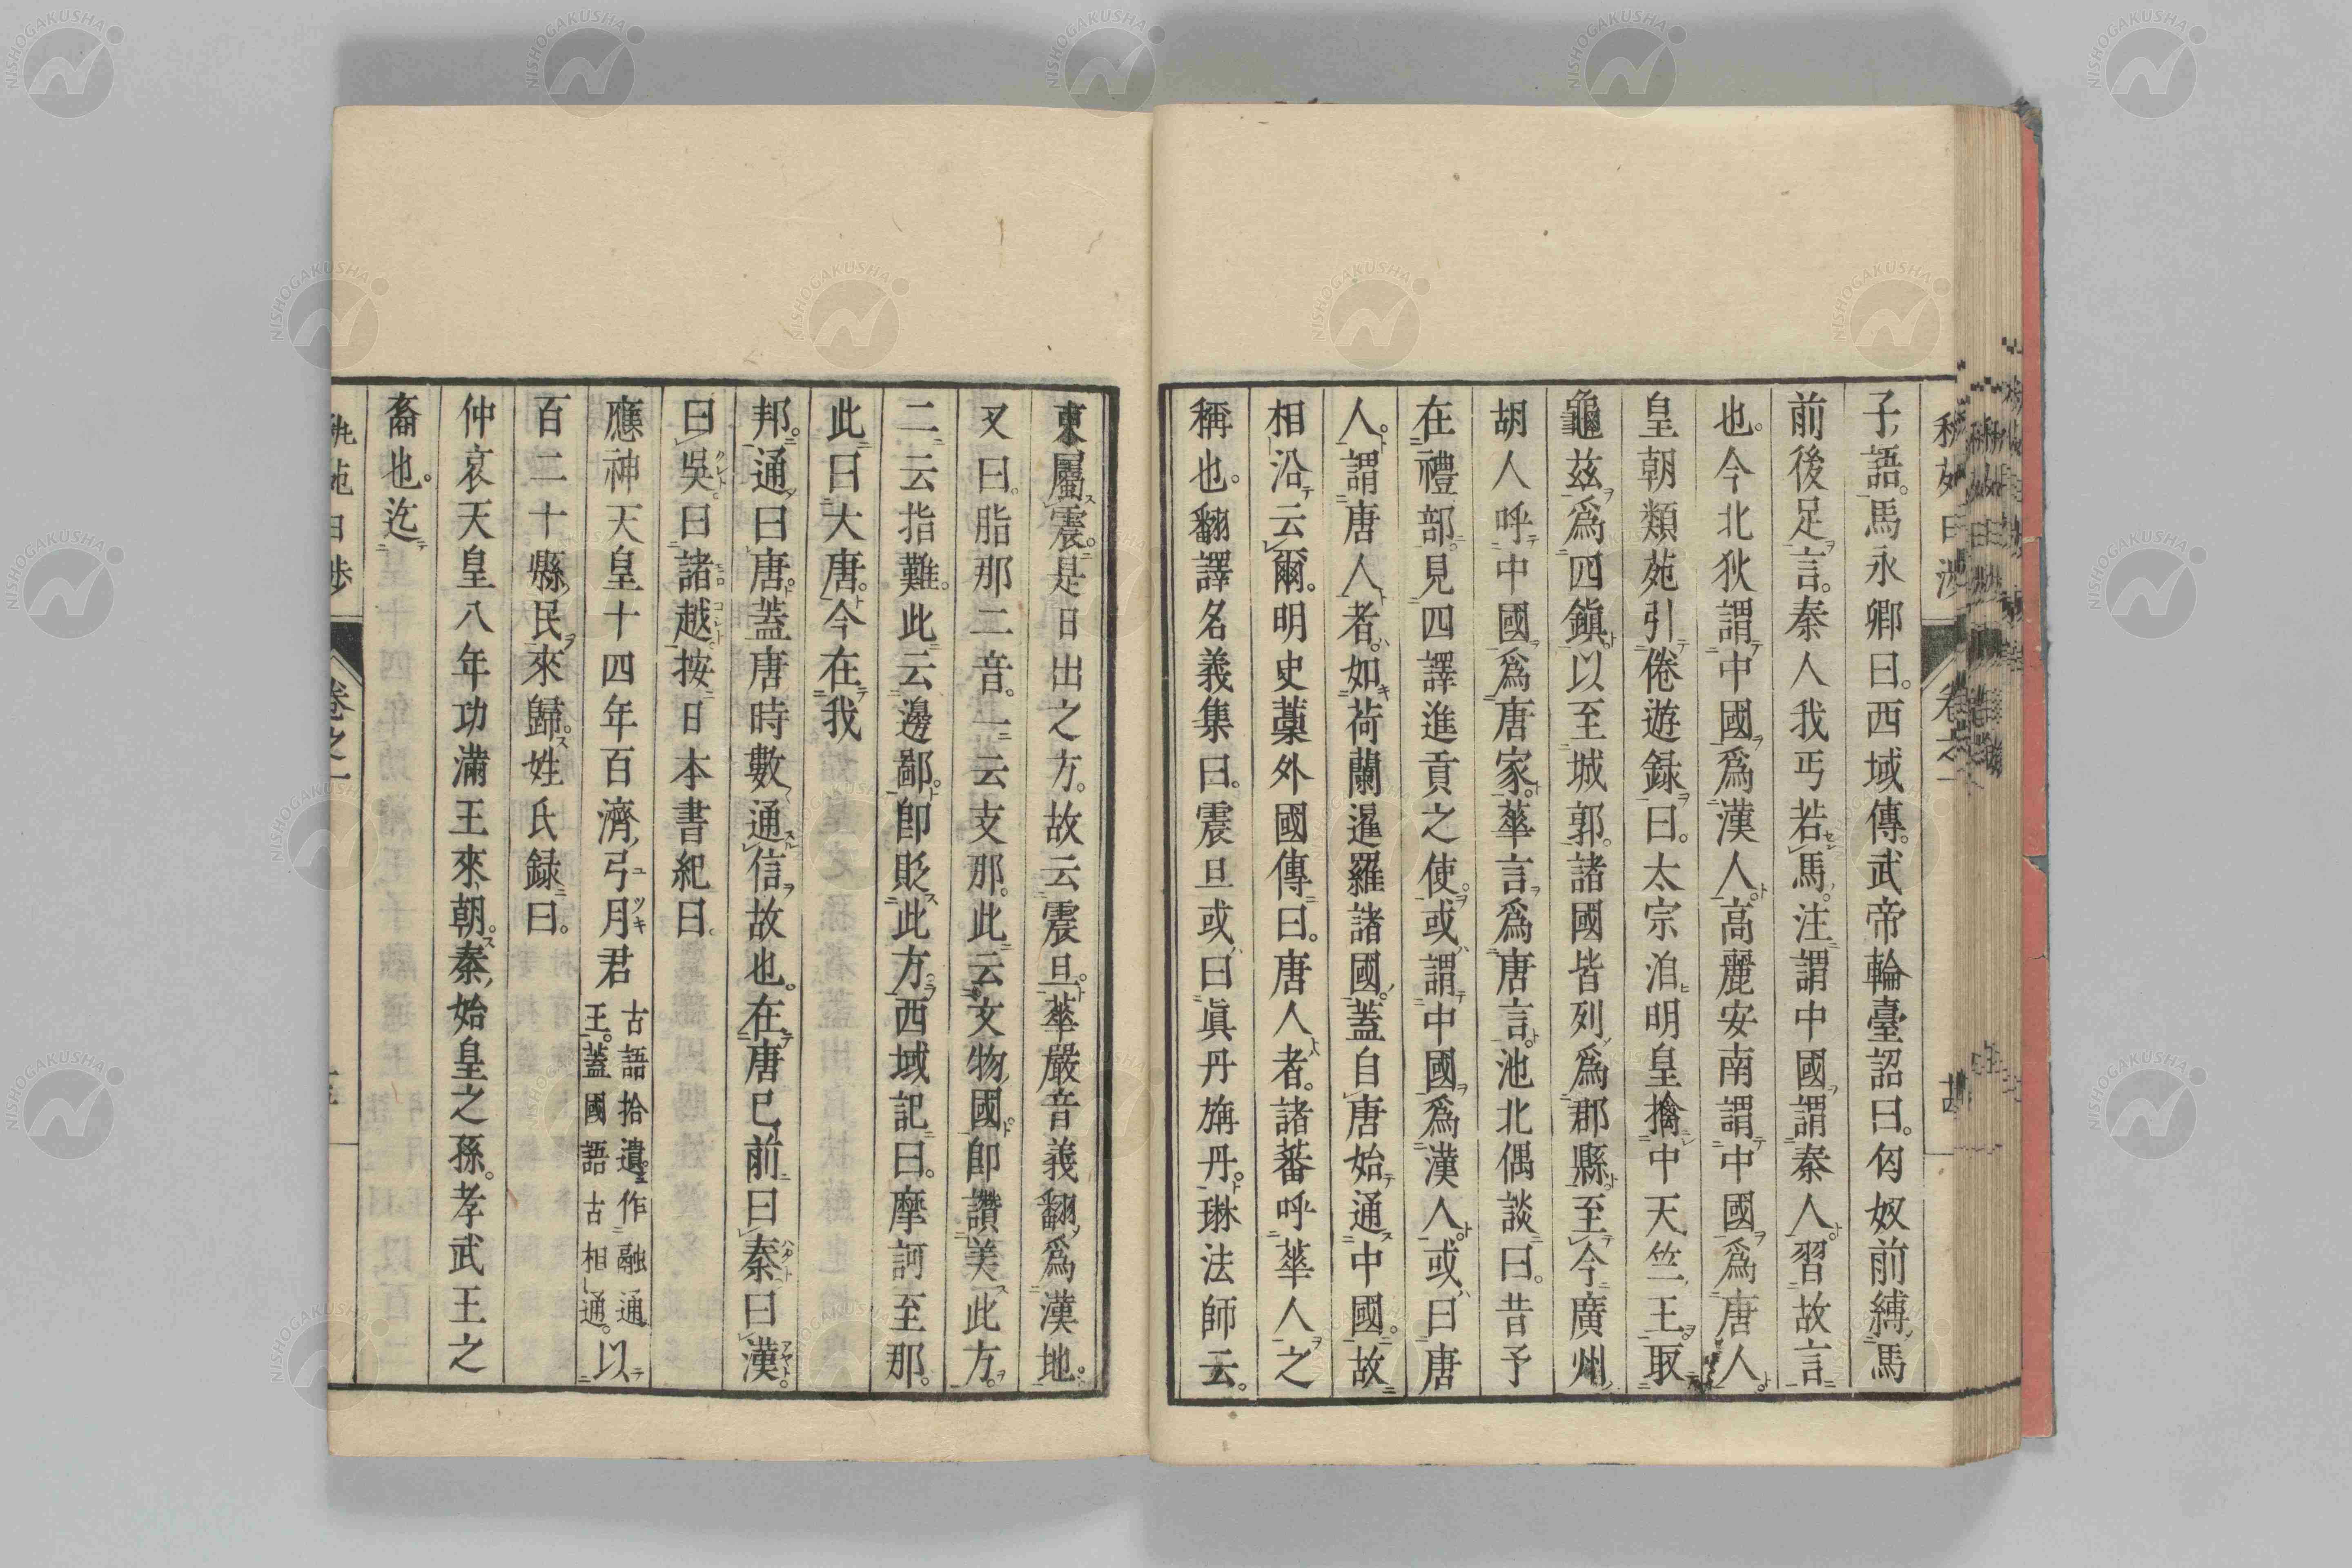 子語。馬永卿曰。西域傳。武帝輪臺詔曰。匈奴前縛馬
前後足言。秦人我丐若馬。注謂中國謂秦人。習故言
也。今北狄謂中國爲漢人。高麗安南謂中國爲唐人。
皇朝類苑引倦遊録曰。太宗洎明皇擒中天竺王。取
龜茲爲四鎭。以至城郭。諸國皆列爲郡縣。至今廣州
胡人呼中國爲唐家。華言爲唐言。池北偶談曰。昔予
在禮部。見四譯進貢之使。或謂中國爲漢人。或曰唐
人。謂唐人者。如荷蘭暹羅諸國。蓋自唐始通中國。故
相沿云爾。明史藁外國傳曰。唐人者。諸蕃呼華人之
稱也。翻譯名義集曰。震旦或曰眞丹旃丹。琳法師云。
東屬震。是日出之方。故云震旦。華嚴音義翻爲漢地。
又曰。脂那二音。一云支那。此云文物國。卽讚美此方。
二云指難。此云邊鄙。卽貶此方。西域記曰。摩訶至那。
此曰大唐。今在我
邦。通曰唐。蓋唐時數通信故也。在唐已前曰秦曰漢
曰吳。曰諸越。按日本書紀曰。
應神天皇十四年百濟弓月君古語拾遺作融通王。蓋國語古相通。以
百二十縣民來歸。姓氏録曰。
仲哀天皇八年功滿王來朝。秦始皇之孫。孝武王之
裔也。迄
卷之一